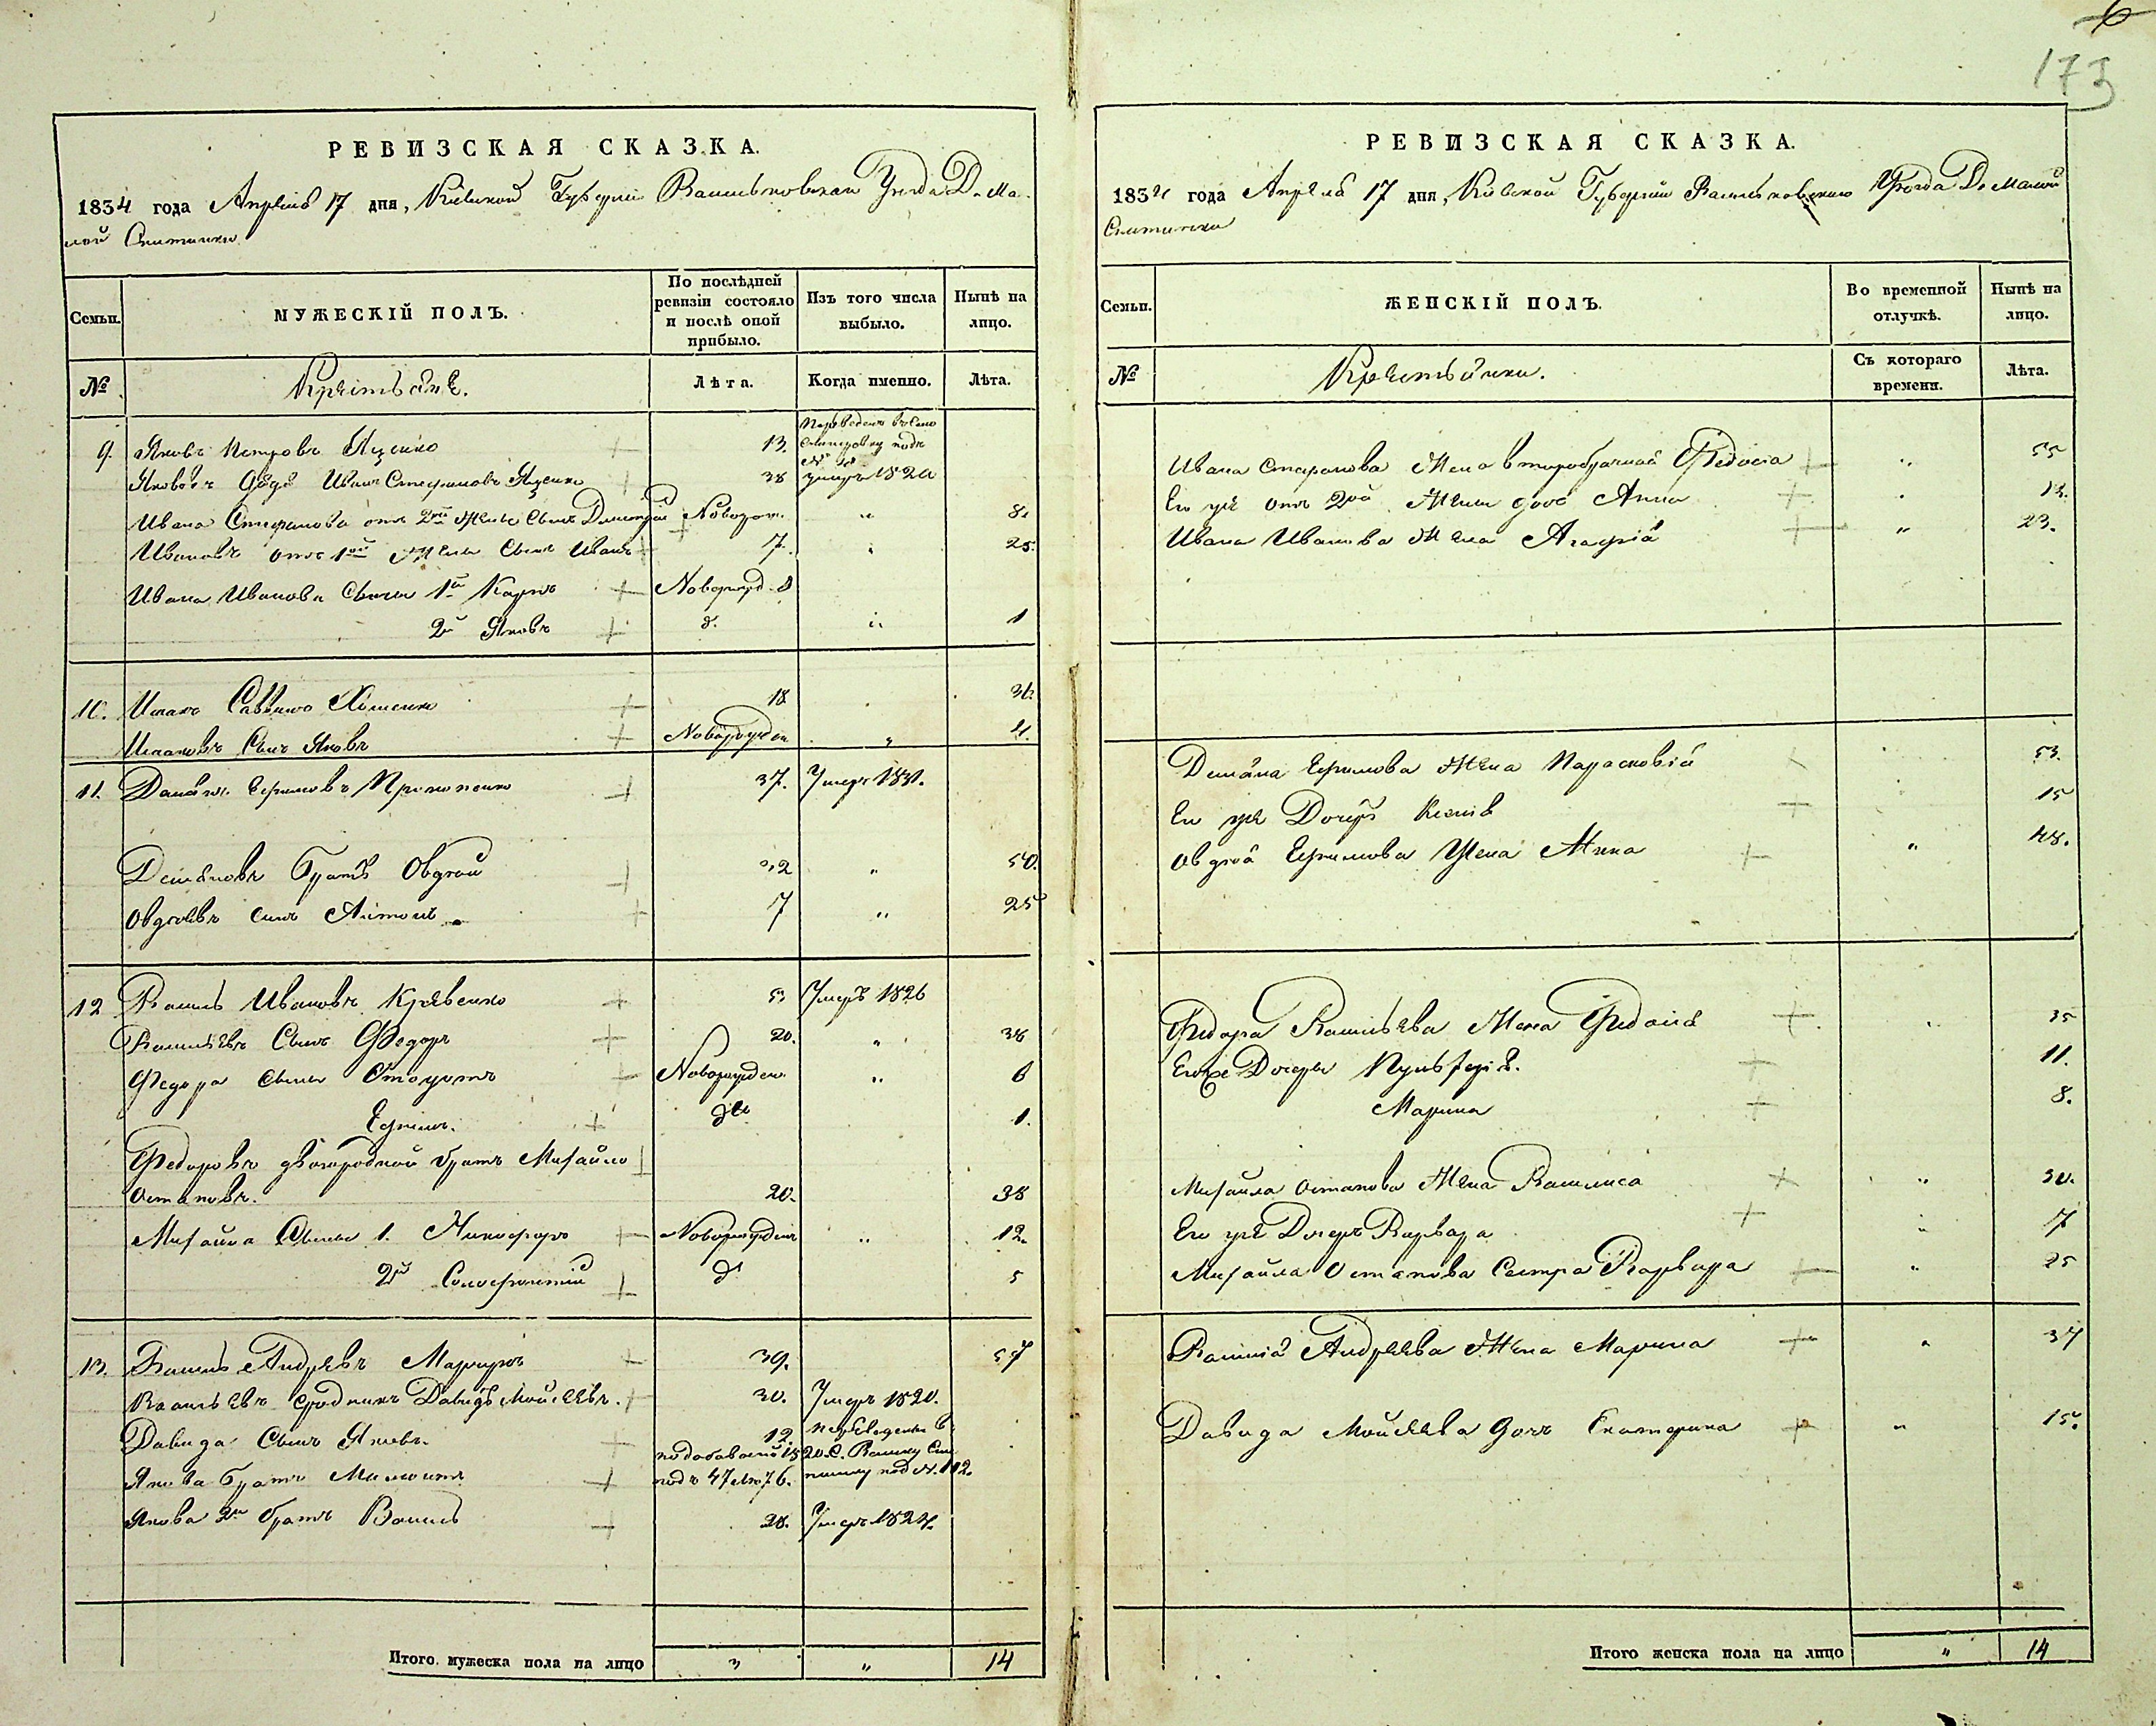 173
РЕВИЗСКАЯ СКАЗКА.
1834 года Апреля 17 дня, Кіевской Губерніи Васильковскаго Уезда Д. Ма-
лой Снитинки
Семьи.
МУЖЕСКІЙ ПОЛЪ.
По послѣдней ревизіи состояло и послѣ оной прибыло.
Изъ того числа выбыло.
Нынѣ на лицо.
№
Крестьяне.
Лѣта.
Когда именно.
Лѣта.
9. Яковъ Петровъ Яценко 13. Переведенъ въ село Снитинку подъ №
Яковъ Дядя Иванъ Стефановъ Яценко 38 умеръ 1820
Ивана Стефанова отъ 2й Жены Сынъ Дмитрій Новорож. „ 8.
Ивановъ отъ 1ой Жены Сынъ Иванъ 7. „ 25.
Ивана Иванова Сыны 1й Карпъ Новорожд. 8
2й Яковъ д. „ 1
10. Исакъ Саввинъ Хоменко 18 31.
Исаковъ Сынъ Яковъ Новорожден „ 4.
11. Даміянъ Ефимовъ Прокопенко 37. Умеръ 1831.
Деміяновъ Братъ Овдѣй 32 „ 50.
Овдѣевъ сынъ Антонъ 7 „ 25
12 Василь Ивановъ Кравенко 53 Умеръ 1826
Васильевъ Сынъ Федоръ 20. „ 38
Федора сыны Новорожден. „ 6
Ефимъ. до 1.
Федоровъ двоюродной братъ Михайло
Остаповъ. 20. 38
Михайла Сыны 1. Никифоръ Новорожден „ 12.
2й Софронтій до 5
13. Василь Андреевъ 39. 57
Васильевъ сродникъ Давидъ Мойсеевъ. 30. Умеръ 1820.
Давида Сынъ Яковъ 12. переведены въ
Якова братъ по добавочной 1820. С. Велику Сни
подъ 47 №76. тинку под №. 112.
Якова 2й братъ Василь 28. Умеръ 1824.
Итого мужеска пола на лицо „ „ 14
РЕВИЗСКАЯ СКАЗКА.
1834 года Апреля 17 дня, Кіевской Губерніи Васильковскаго Уезда Д. Малой
Снитинки
Семьи.
ЖЕНСКІЙ ПОЛЪ.
Во временной отлучкѣ.
Нынѣ на лицо.
№
Крестьянки.
Съ котораго времени.
Лѣта.
Ивана Стефанова Жена второбрачная Федосія „ 55
Его же отъ 2ой Жены дочь Анна „ 13.
Ивана Иванова Жена Агафія „ 23.
Деміяна Ефимова Жена Парасковія 53.
Его же Дочерь Ксенія 15
Овдѣя Ефимова Жена Анна „ 48.
Федора Васильева Жена Федосія „ 35
Его же Дочери Пульхерія. 11.
Марина 8.
Михайла Остапова Жена Василиса „ 30.
Его же Дочерь Варвара „ 7
Михайла Остапова Сестра Варвара „ 25
Василія Андреева Жена Марина „ 37
Давида Мойсеева дочь Екатерина „ 15.
Итого женска пола на лицо „ 14